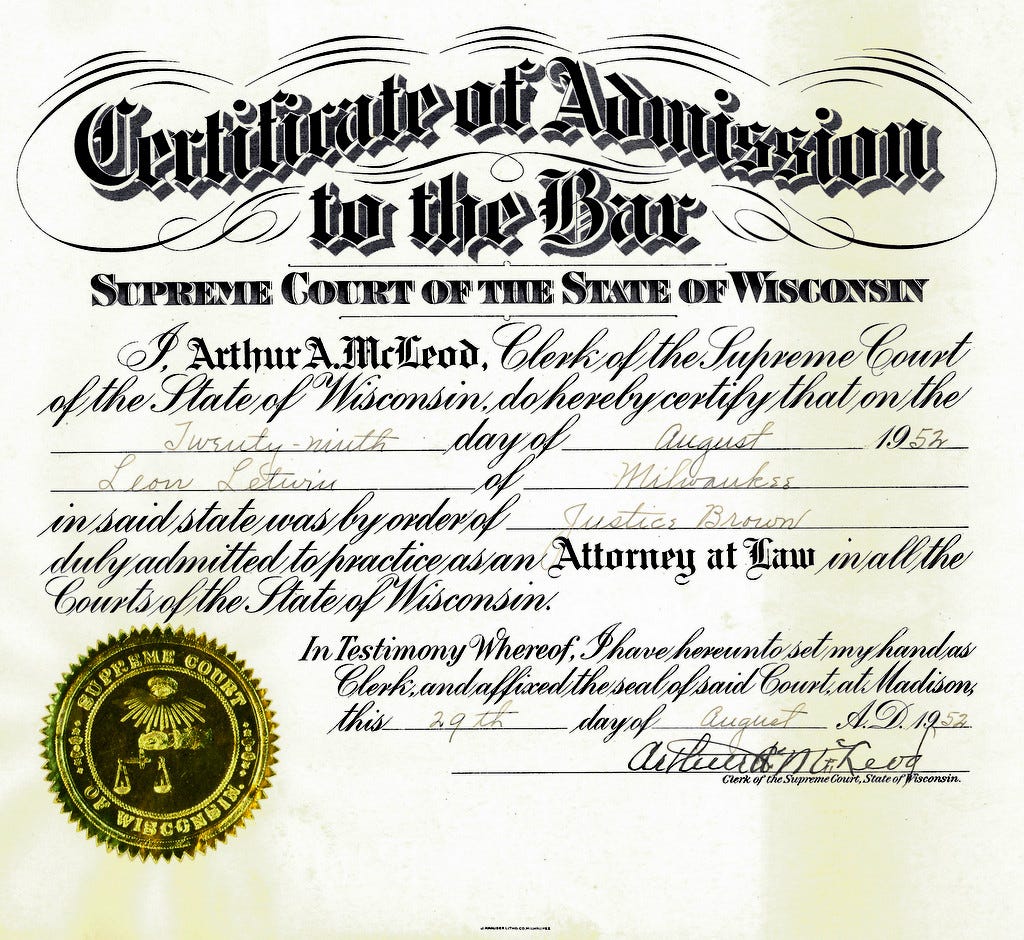 Certificate of Admission
to the Bar
SUPREME COURT OF THE STATE OF WISCONSIN
I, Arthur A. McLeod, Clerk of the Supreme Court
of the State of Wisconsin, do hereby certify that on the
Twenty-ninth day of August 1952
Leon Letwin of Milwaukee
in said state was by order of Justice Brown
duly admitted to practice as an Attorney at Law in all the
Courts of the State of Wisconsin.
In Testimony Whereof, I have hereunto set my hand as
Clerk, and affixed the seal of said Court, at Madison,
this 29th day of August A.D. 1952
Arthur A. McLeod
Clerk of the Supreme Court, State of Wisconsin.
SUPREME COURT
OF WISCONSIN.